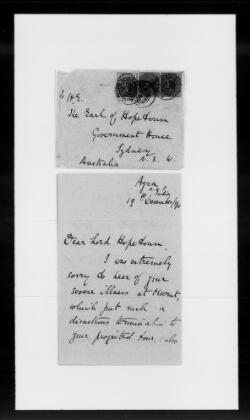 H.E.
The Earl of Hopetoun
Government House
Sydney
Australia N.S.W.
Agra
India
19th December/00
Dear Lord Hopetoun,
I was extremely
sorry to hear of your
severe illness at Meerut,
which put such a
disastrous termination to
your projected tour, also